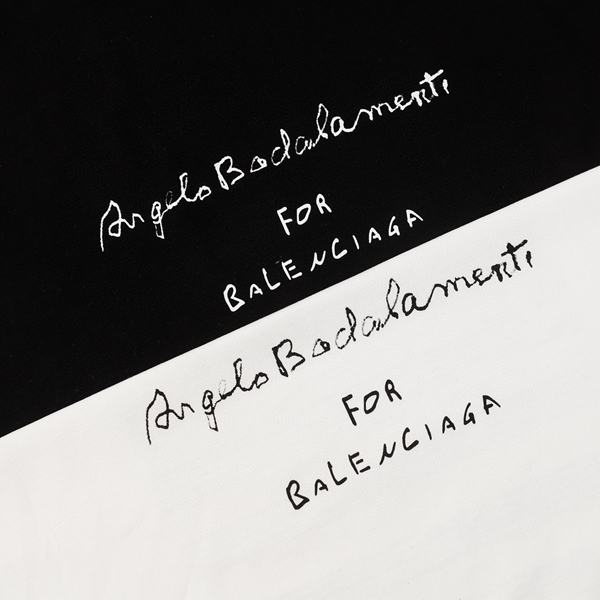 Angelo Badalamenti
FOR
BALENCIAGA
Angelo Badalamenti
FOR
BALENCIAGA